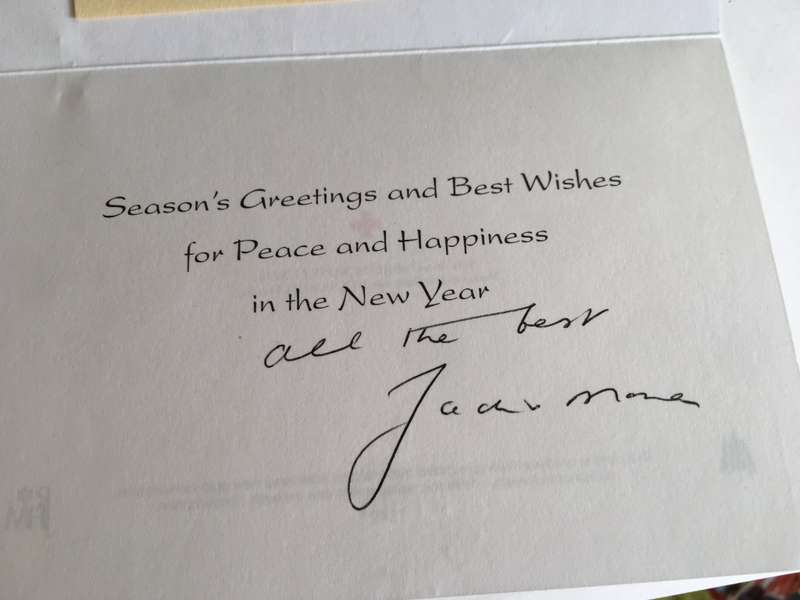 Season's Greetings and Best Wishes
for Peace and Happiness
in the New Year
all the best